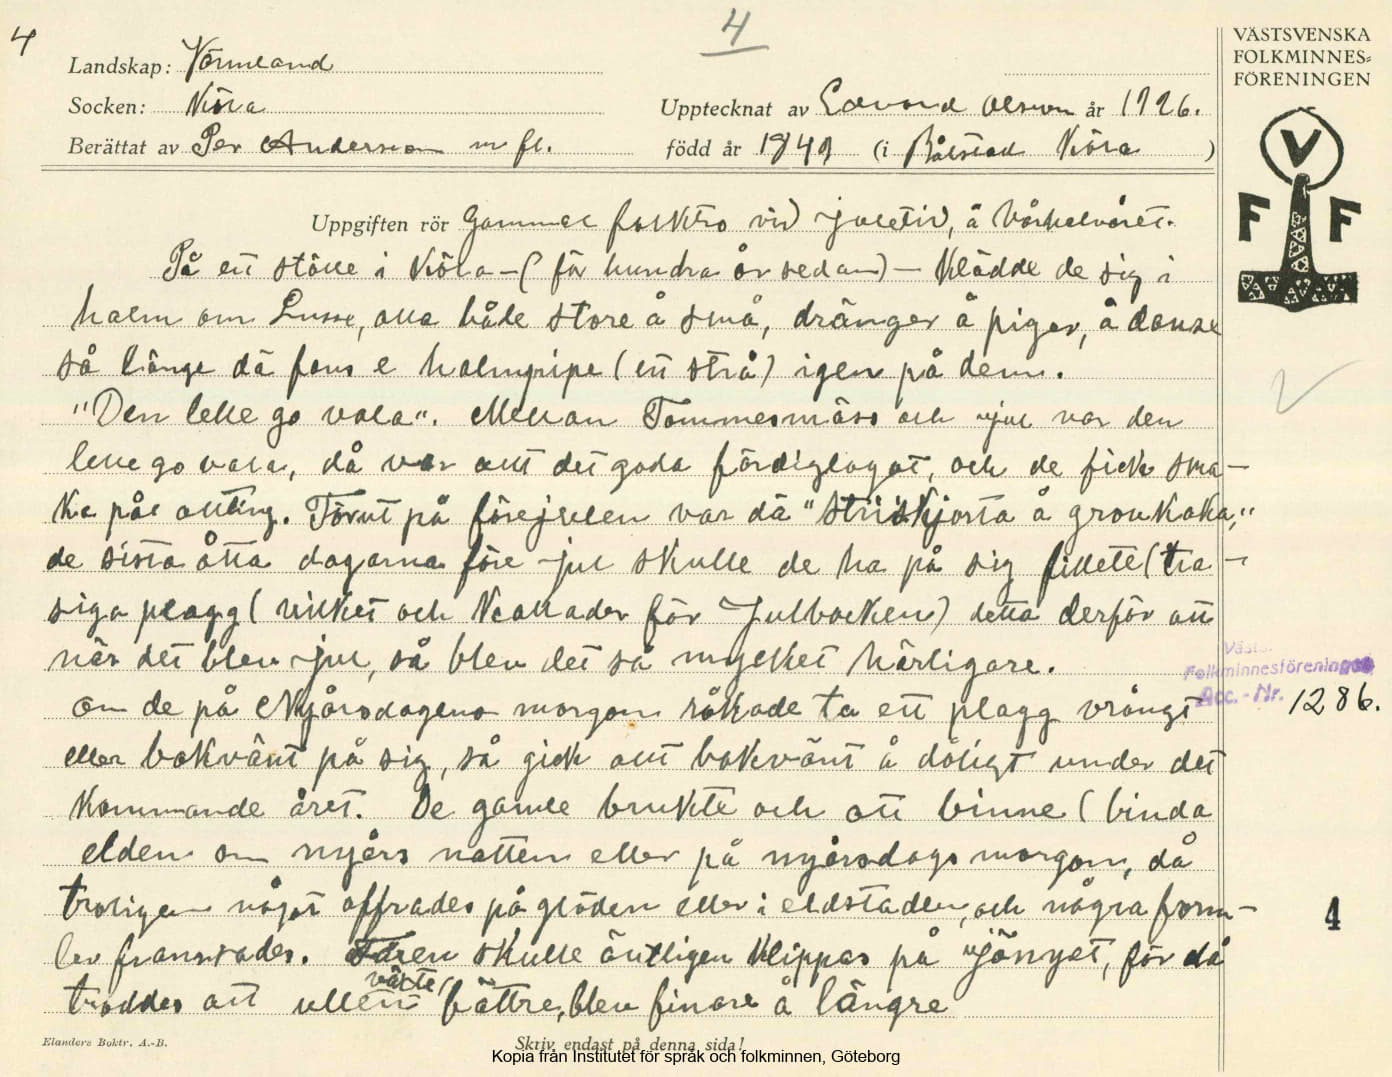 4
4
VÄSTSVENSKA
FOLKMINNES=
FÖRENINGEN
V
F F
Landskap: Värmland
Socken: Köla
Upptecknat av Edvard Olsson år 1926.
Berättat av Per Andersson m fl.
född år 1849 (i Bålstad Köla)
Uppgiften rör Gammel folktro vid juletid, å Vårhalvåret.
På ett ställe i Köla – (för hundra år sedan) – klädde de sig i
halm om Lusse, alla både store å små, dränger å piger, å danse
så länge dä fans e halmpipe (ett strå) igen på dem.
"Den lelle go vala". Mellan Tommesmäss och jul var den
lelle go vala, då var allt det goda färdiglagat, och de fick sma-
ka påe allting. Förut på förejulen var dä "striskjorta å grovkaka,"
de sista åtta dagarna före jul skulle de ha på sig fillete (tra-
siga plagg (vilket och kallades för Julbocken) detta derför att
när det blev jul, så blev det så mycket härligare.
Om de på Nyårsdagens morgon råkade ta ett plagg vrångt
eller bakvänt på sig, så gick allt bakvänt å dåligt under det
kommande året. De gamle brukte och att binne (binda
elden om nyårs natten eller på nyårsdags morgon, då
troligen något offrades på glöden eller i eldstaden, och några form-
ler framsades. Fåren skulle äntligen klippas på "jånyet, för då
troddes att ullen växte bättre, blev finare å längre
Västs.
Folkminnesföreningens
Acc.-Nr. 1286.
4
Elanders Boktr. A.-B.
Skriv endast på denna sida!
Kopia från Institutet för språk och folkminnen, Göteborg